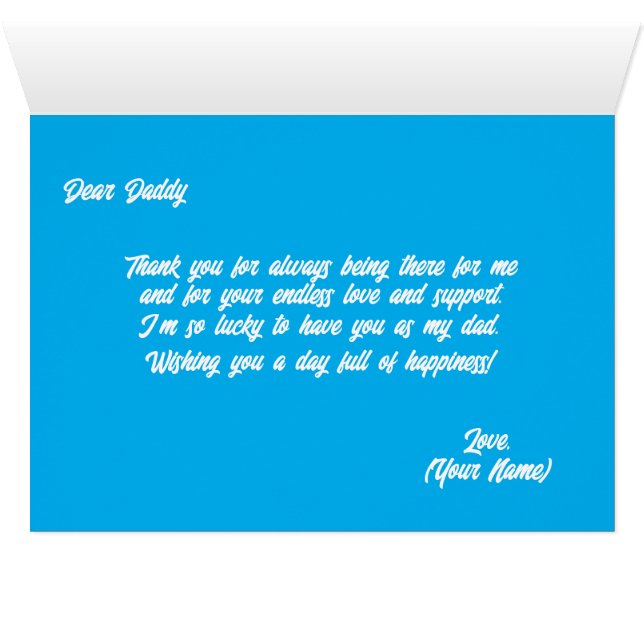 Dear Daddy
Thank you for always being there for me
and for your endless love and support.
I'm so lucky to have you as my dad.
Wishing you a day full of happiness!
Love,
(Your Name)